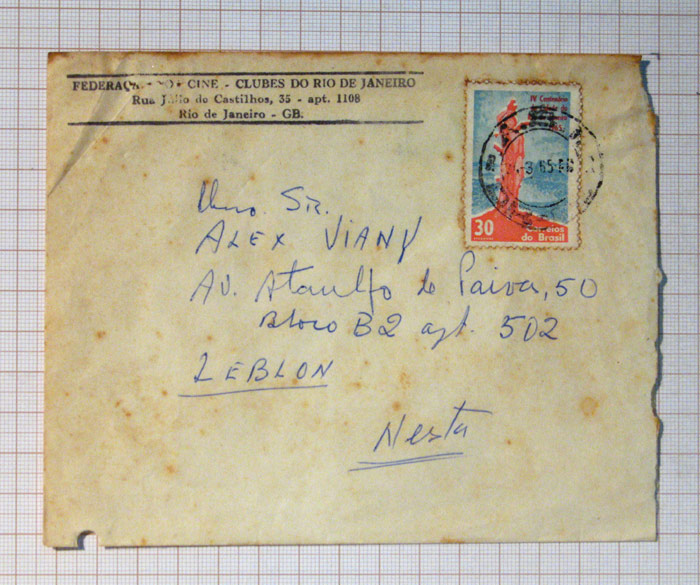 FEDERAÇÃO DOS CINE - CLUBES DO RIO DE JANEIRO
Rua Júlio de Castilhos, 35 - apt. 1108
Rio de Janeiro - GB.
IV Centenário
30
Correios
do Brasil
65
Ilmo SR.
ALEX VIANY
Av. Ataulfo de Paiva, 50
Bloco B2 apt. 502
LEBLON
Nesta